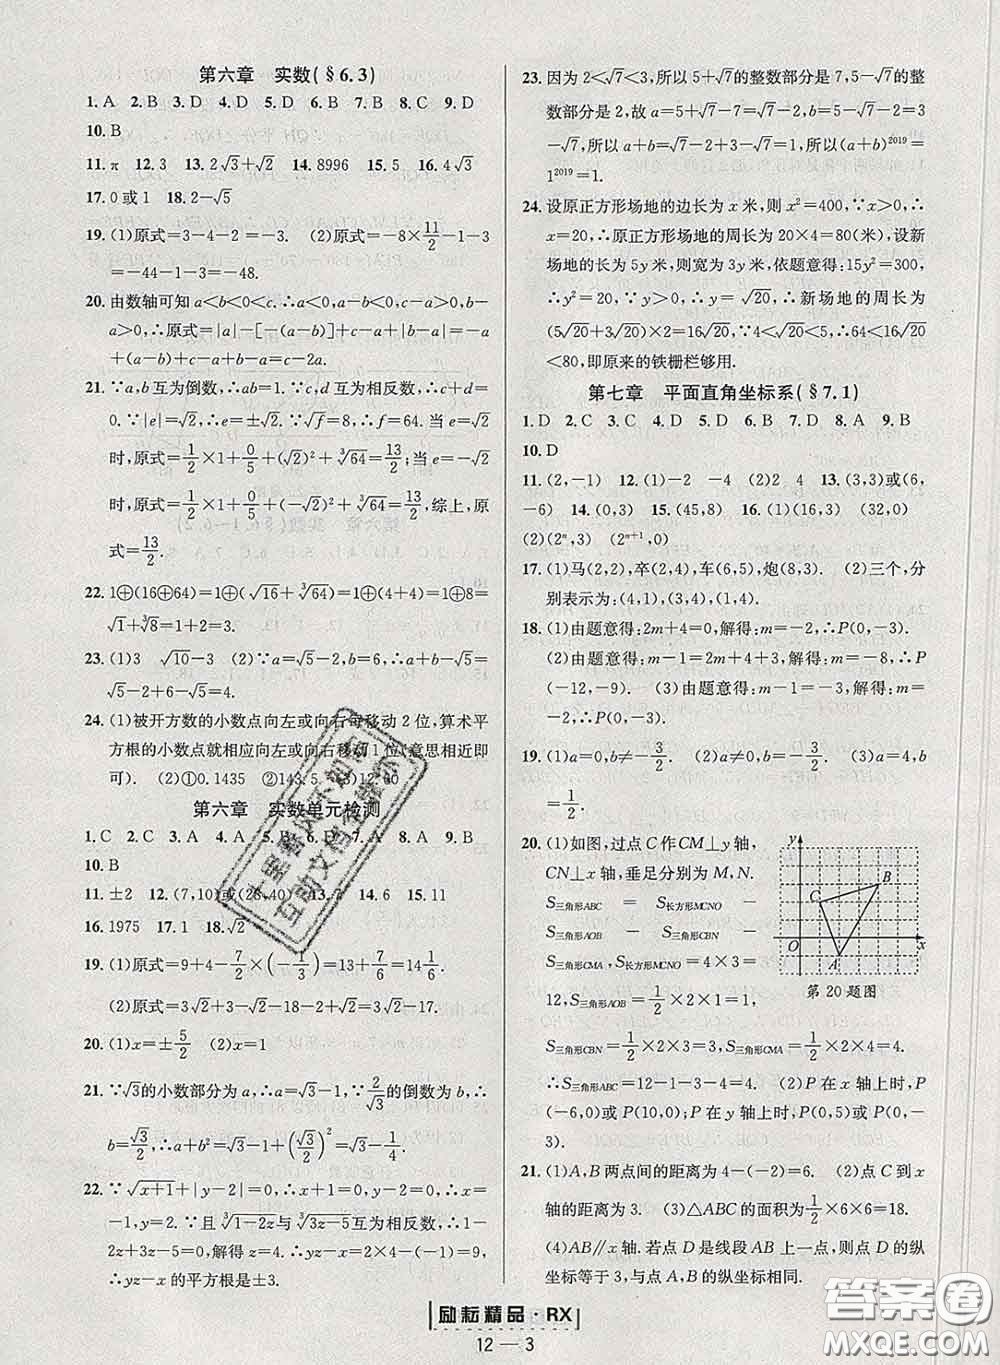 第六章　实数(§6.3)
1. A　2. B　3. D　4. D　5. D　6. B　7. B　8. C　9. D
10. B
11. π　12. 3　13. 2√3+√2　14. 8996　15. 5　16. 4√3
17. 0或1　18. 2−√5
19. (1)原式=3−4−2=−3.　(2)原式=−8×11/2−1−3
=−44−1−3=−48.
20. 由数轴可知a<b<0<c.∴a−b<0,c−a>0,b−
a>0,∴原式=|a|−[−(a−b)]+c−a+|b−a|=−a
+(a−b)+c−a+(b−a)=c−2a.
21. ∵a,b互为倒数,∴ab=1.∵c,d互为相反数,∴c+d=
0.∵|e|=√2,∴e=±√2.∵√f=8,∴f=64.当e=√2
时,原式=1/2×1+0/5+(√2)²+∛64=13/2;当e=−√2
时,原式=1/2×1+0/5+(−√2)²+∛64=13/2,综上,原
式=13/2.
22. 1⊕(16⊕64)=1⊕(√16+∛64)=1⊕(4+4)=1⊕8=
√1+∛8=1+2=3.
23. (1)3　√10−3　(2)∵a=√5−2,b=6,∴a+b−√5=
√5−2+6−√5=4.
24. (1)被开方数的小数点向左或向右每移动2位,算术平
方根的小数点就相应向左或向右移动1位(意思相近即
可).　(2)①0.1435　②143.5　(3)12.60
第六章　实数单元检测
1. C　2. C　3. A　4. C　5. B　6. D　7. A　8. A　9. B
10. B
11. ±2　12. (7,10)或(28,40)　13. 7　14. 6　15. 11
16. 1975　17. 1　18. √2
19. (1)原式=9+4−7/2×(−1/3)=13+7/6=14 1/6.
(2)原式=3√2+3−2√2−18−2+√2=2√2−17.
20. (1)x=±5/2　(2)x=1
21. ∵√3的小数部分为a,∴a=√3−1,∵2/√3的倒数为b,∴
b=√3/2,∴a+b²=√3−1+(√3/2)²=√3−1/4.
22. ∵√(x+1)+|y−2|=0,∴x+1=0,y−2=0,∴x=
−1,y=2.∵且∛(1−2z)与∛(3z−5)互为相反数,∴1−
2z+3z−5=0,解得z=4.∴yz−x=2×4−(−1)=9,
∴yz−x的平方根是±3.
23. 因为2<√7<3,所以5+√7的整数部分是7,5−√7的整
数部分是2,故a=5+√7−7=√7−2,b=5−√7−2=3
−√7,所以a+b=√7−2+3−√7=1,所以(a+b)²⁰¹⁹=
1²⁰¹⁹=1.
24. 设原正方形场地的边长为x米,则x²=400,∵x>0,∴
x=20,∴原正方形场地的周长为20×4=80(米),设新
场地的长为5y米,则宽为3y米,依题意得:15y²=300,
∴y²=20,∵y>0,∴y=√20,∴新场地的周长为
(5√20+3√20)×2=16√20,∵4<√20<5,∴64<16√20
<80,即原来的铁栅栏够用.
第七章　平面直角坐标系(§7.1)
1. D　2. C　3. C　4. D　5. D　6. B　7. D　8. A　9. B
10. D
11. (2,−1)　12. (1)−2　−4　(2)2　4　13. (3,3)或(6,
−6)　14. (0,3)　15. (45,8)　16. (1)(16,3)　(32,0)
(2)(2ⁿ,3)　(2ⁿ⁺¹,0)
17. (1)马(2,2),卒(2,4),车(6,5),炮(8,3)　(2)三个,分
别表示为:(4,1),(3,4),(1,4).
18. (1)由题意得:2m+4=0,解得:m=−2,∴P(0,−3).
(2)由题意得:m−1=2m+4+3,解得:m=−8,∴P
(−12,−9).　(3)由题意得:m−1=−3,解得:m=
−2,∴P(0,−3).
19. (1)a=0,b≠−3/2　(2)a≠0,b=−3/2　(3)a=4,b
=1/2.
20. (1)如图,过点C作CM⊥y轴,
CN⊥x轴,垂足分别为M、N.
S三角形ABC = S长方形MCNO −
S三角形AOB − S三角形CBN −
S三角形CMA,S长方形MCNO=4×3=
12,S三角形AOB=1/2×2×1=1.
S三角形CBN=1/2×2×3=3,S三角形CMA=1/2×2×4=4.
∴S三角形ABC=12−1−3−4=4.　(2)P在x轴上时,P
(−6,0)或P(10,0);P在y轴上时,P(0,5)或P(0,−
3).
y
C
B
O
A
x
第20题图
21. (1)A,B两点间的距离为4−(−2)=6.　(2)点C到x
轴的距离为3.　(3)△ABC的面积为1/2×6×6=18.
(4)AB∥x轴.若点D是线段AB上一点,则点D的纵
坐标等于3,与点A、B的纵坐标相同.
十里春风不如你
互助文档至学小
励耘精品·RX
12—3
答案圈
MXQE.COM